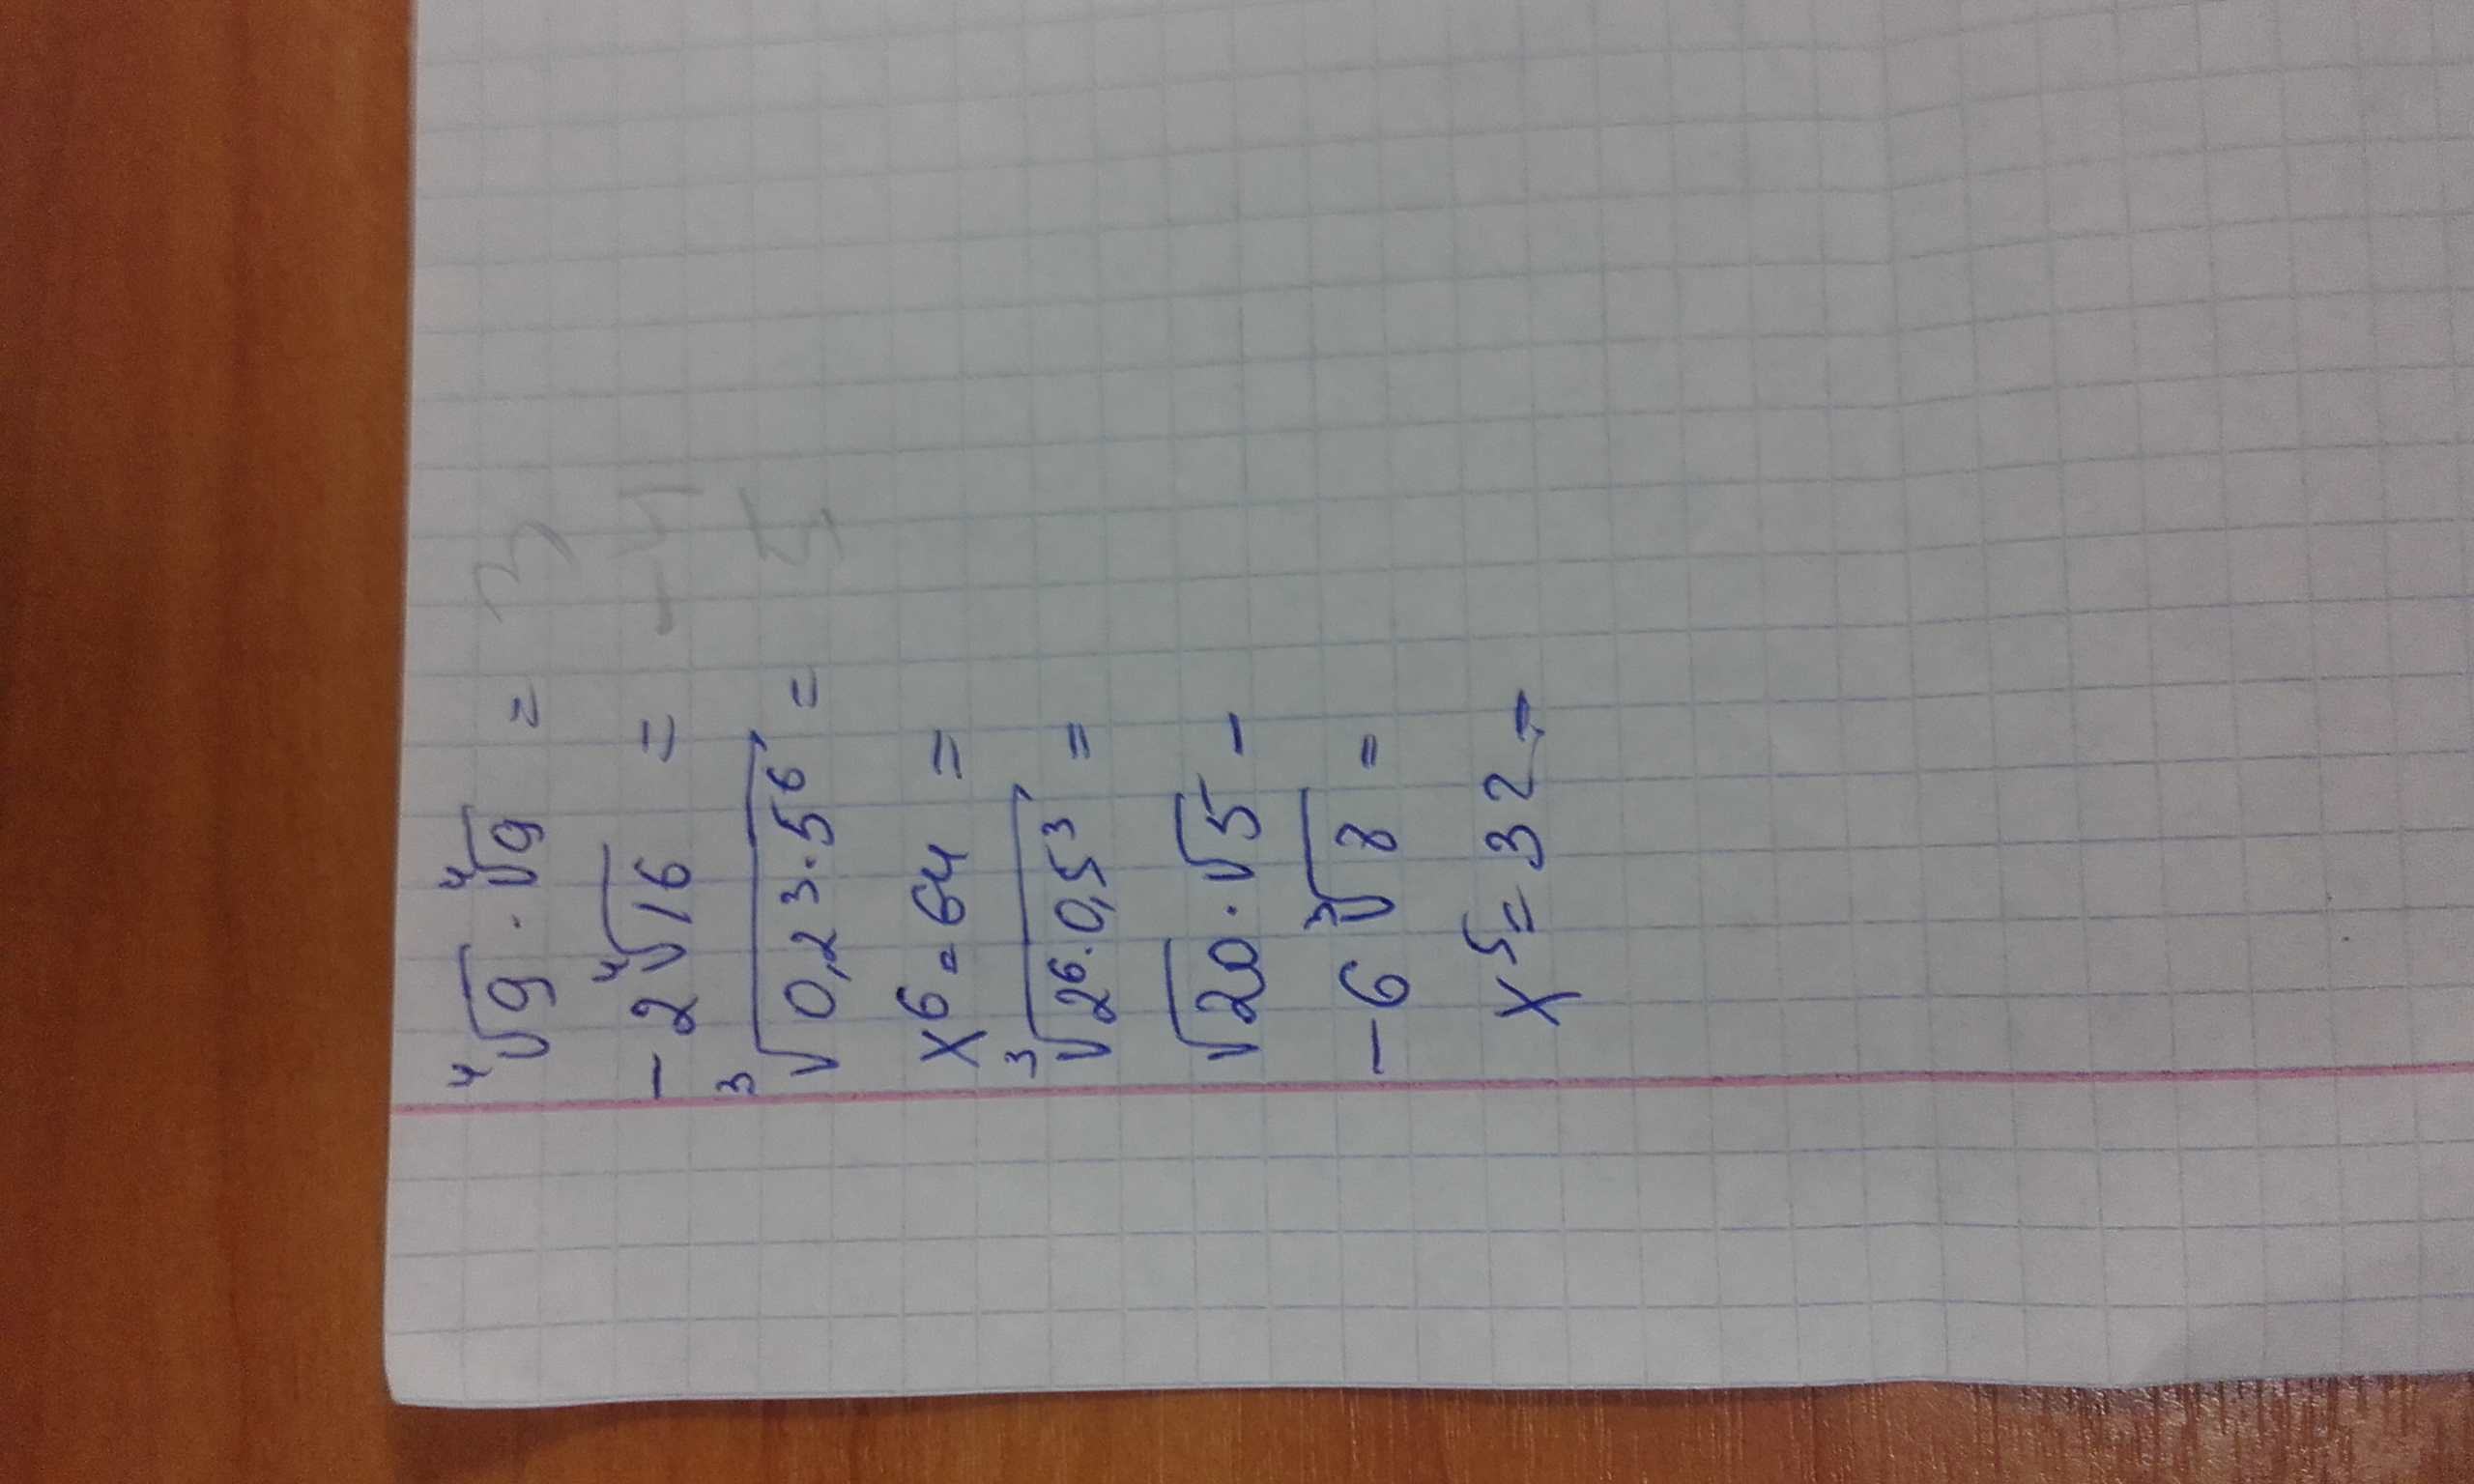 ⁴√9 · ⁴√9 = 3
-2 ⁴√16 = -4
³√(0,2³·5⁶) = 5
x⁶ = 64 =
³√(2⁶·0,5³) =
√20 · √5 -
-6 ³√8 =
x⁵ = 32 -